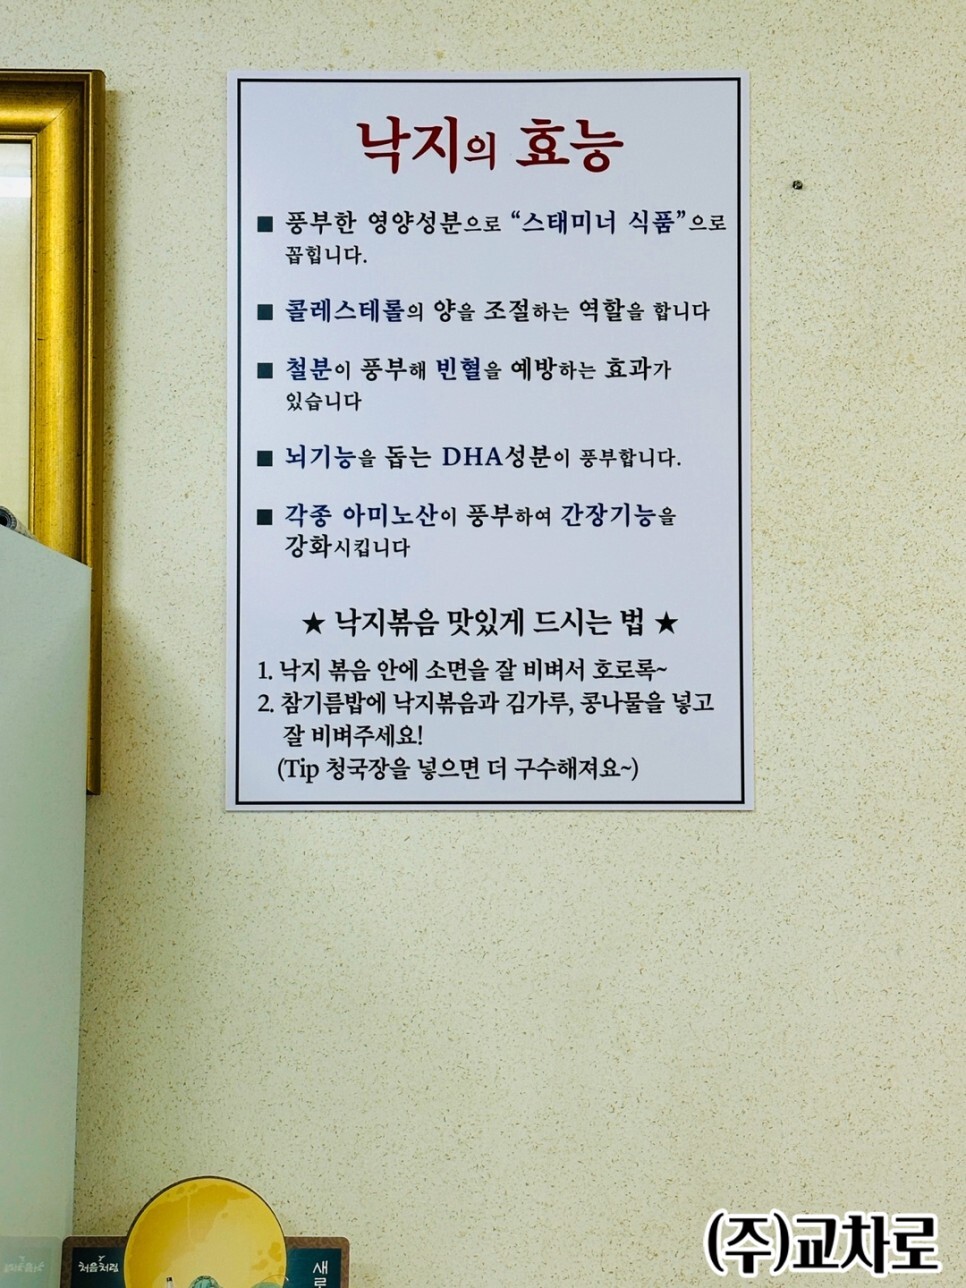 낙지의 효능
■ 풍부한 영양성분으로 “스태미너 식품”으로
꼽힙니다.
■ 콜레스테롤의 양을 조절하는 역할을 합니다
■ 철분이 풍부해 빈혈을 예방하는 효과가
있습니다
■ 뇌기능을 돕는 DHA성분이 풍부합니다.
■ 각종 아미노산이 풍부하여 간장기능을
강화시킵니다
★ 낙지볶음 맛있게 드시는 법 ★
1. 낙지 볶음 안에 소면을 잘 비벼서 호로록~
2. 참기름밥에 낙지볶음과 김가루, 콩나물을 넣고
잘 비벼주세요!
(Tip 청국장을 넣으면 더 구수해져요~)
처음처럼
새로
(주)교차로